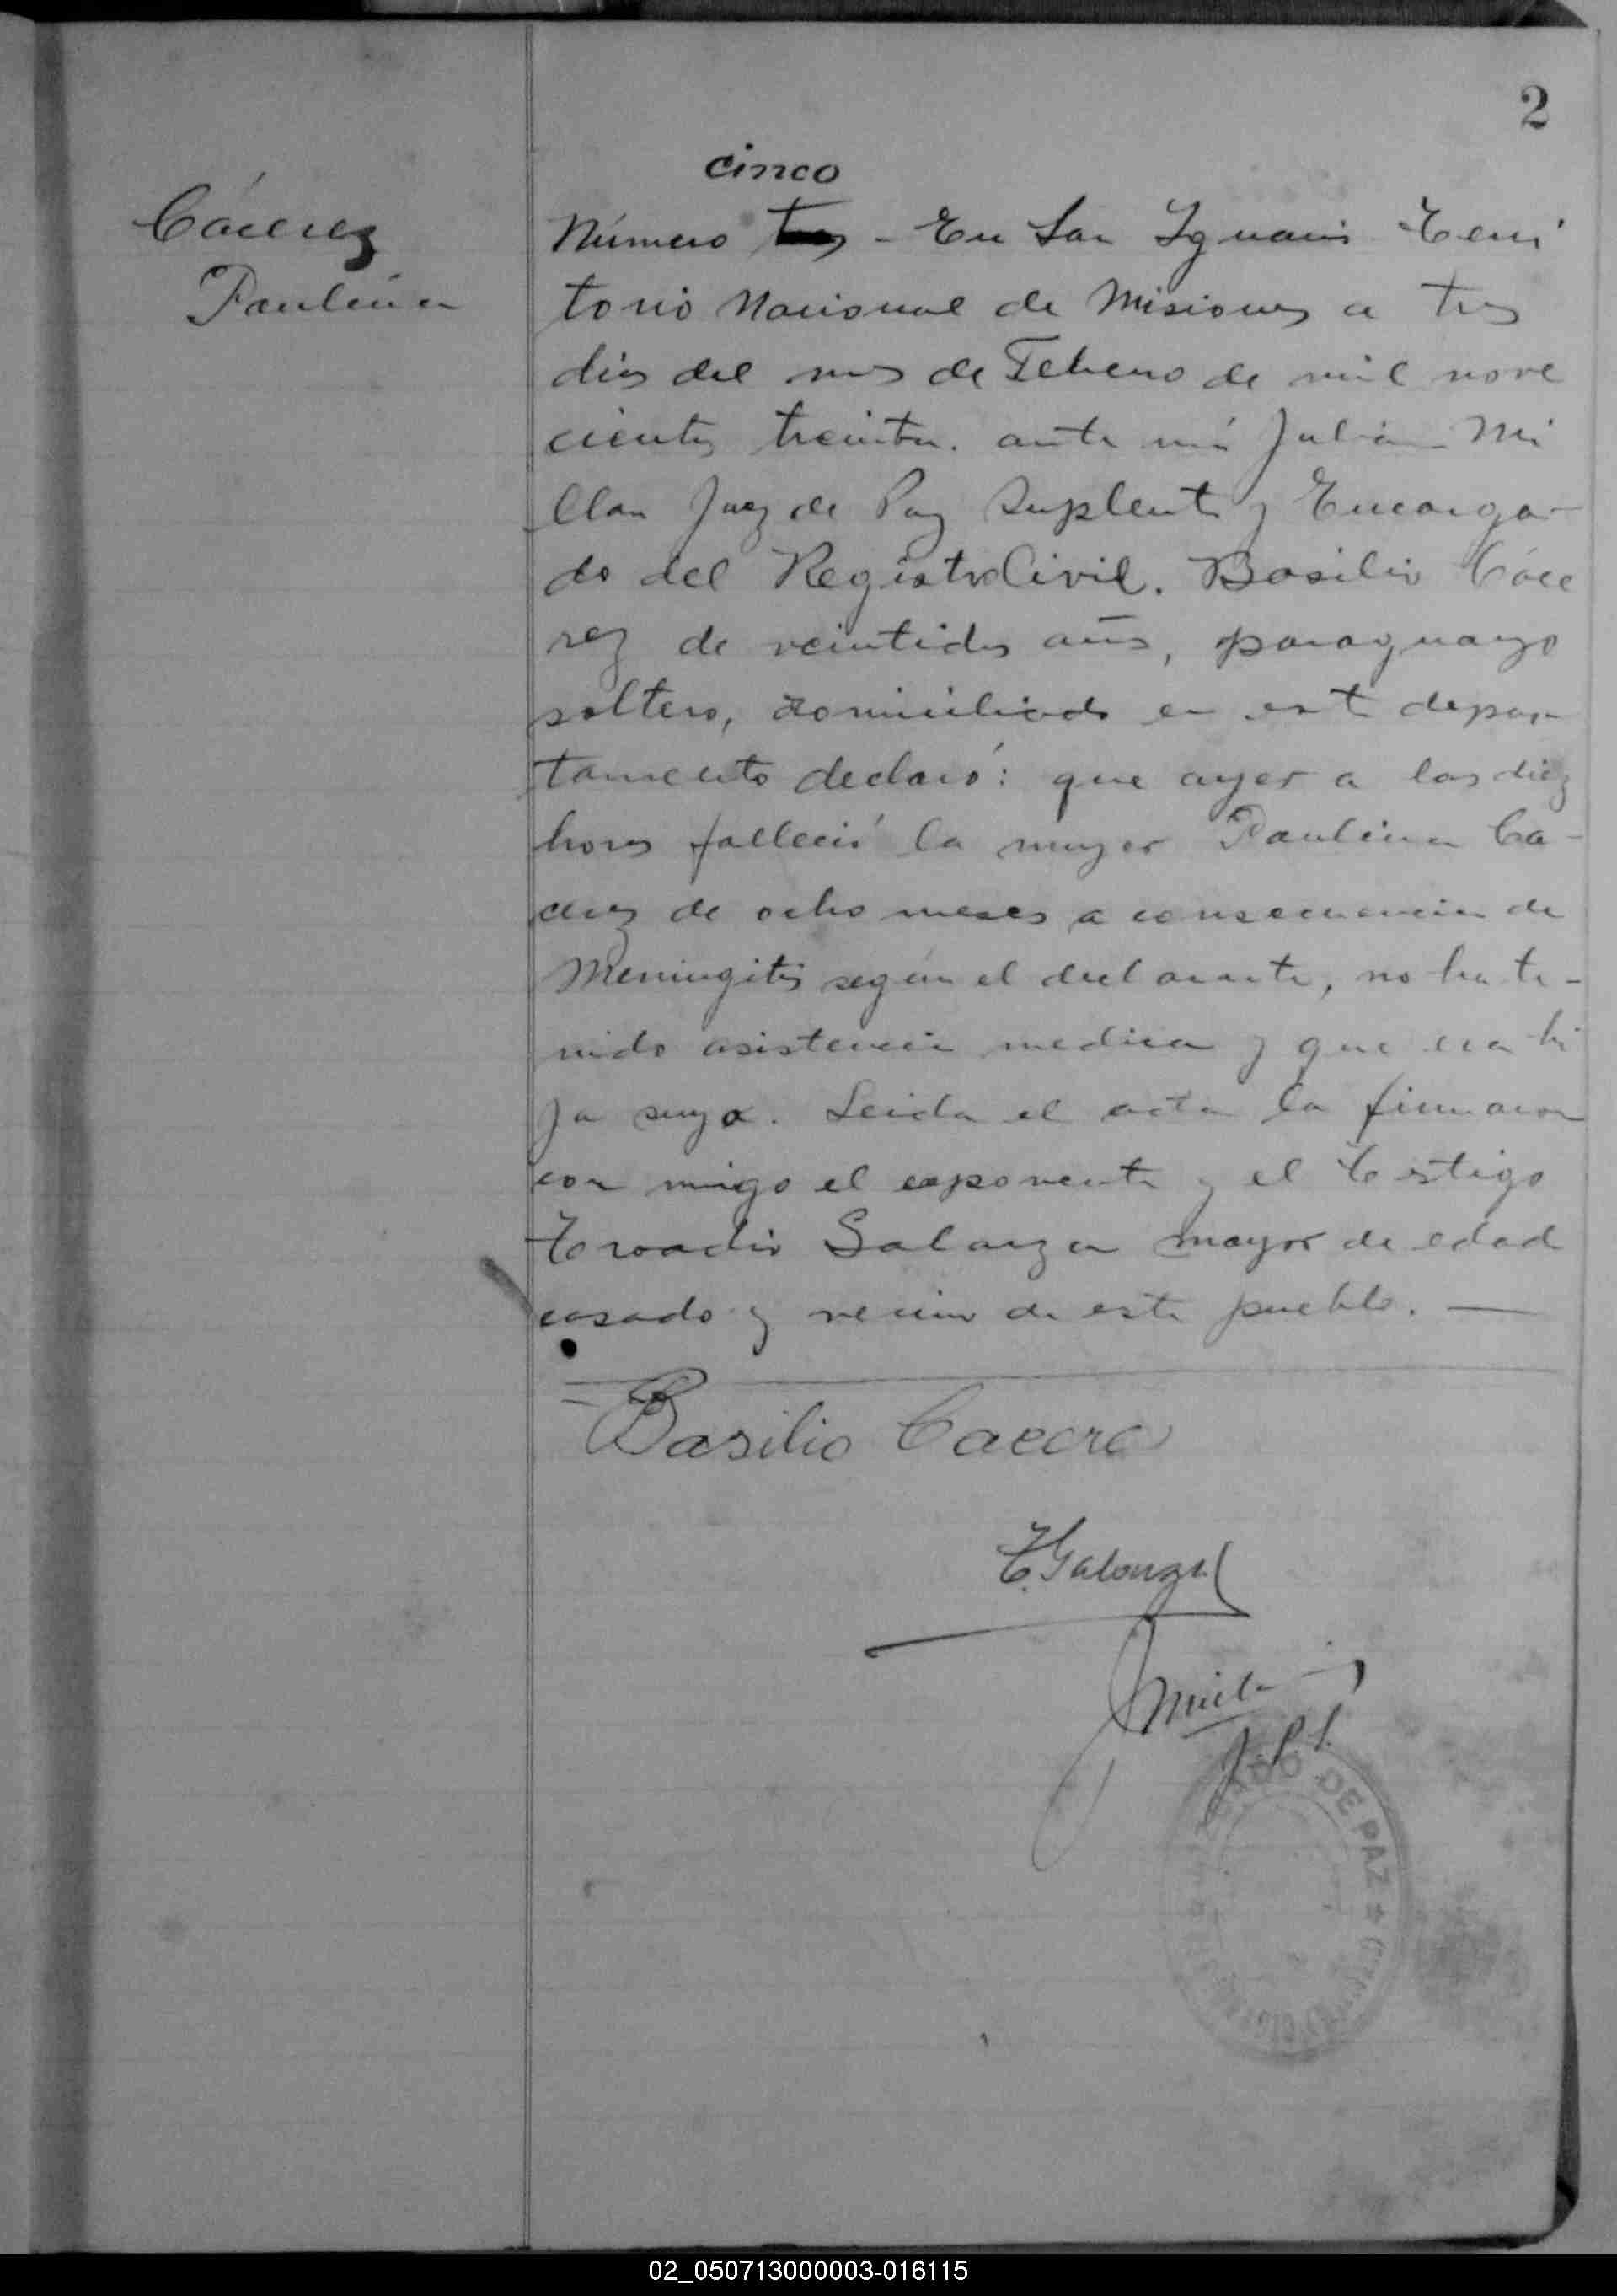 2
cinco
Cácerez
Paulina
Número tres - En San Ignacio Terri
torio Nacional de Misiones a tres
dias del mes de Febrero de mil nove
cientos treinta. ante mi Julián Mi
llan Juez de Paz Suplente y Encarga-
do del Registro Civil. Basilio Cáce
rez de veintidos años, paraguayo
soltero, domiciliado en este depar
tamento declaró: que ayer a las diez
horas falleció la mujer Paulina Ca-
cerez de ocho meses a consecuencia de
Meningitis según el declarante, no ha te-
nido asistencia medica y que era hi
ja suya. Leida el acta la firmaron
con migo el exponente y el testigo
Troadio Galarza mayor de edad
casado y vecino de este pueblo. —
Basilio Cacere
T. Galarza
J Millan
J. P. S.
DE PAZ
02_050713000003-016115